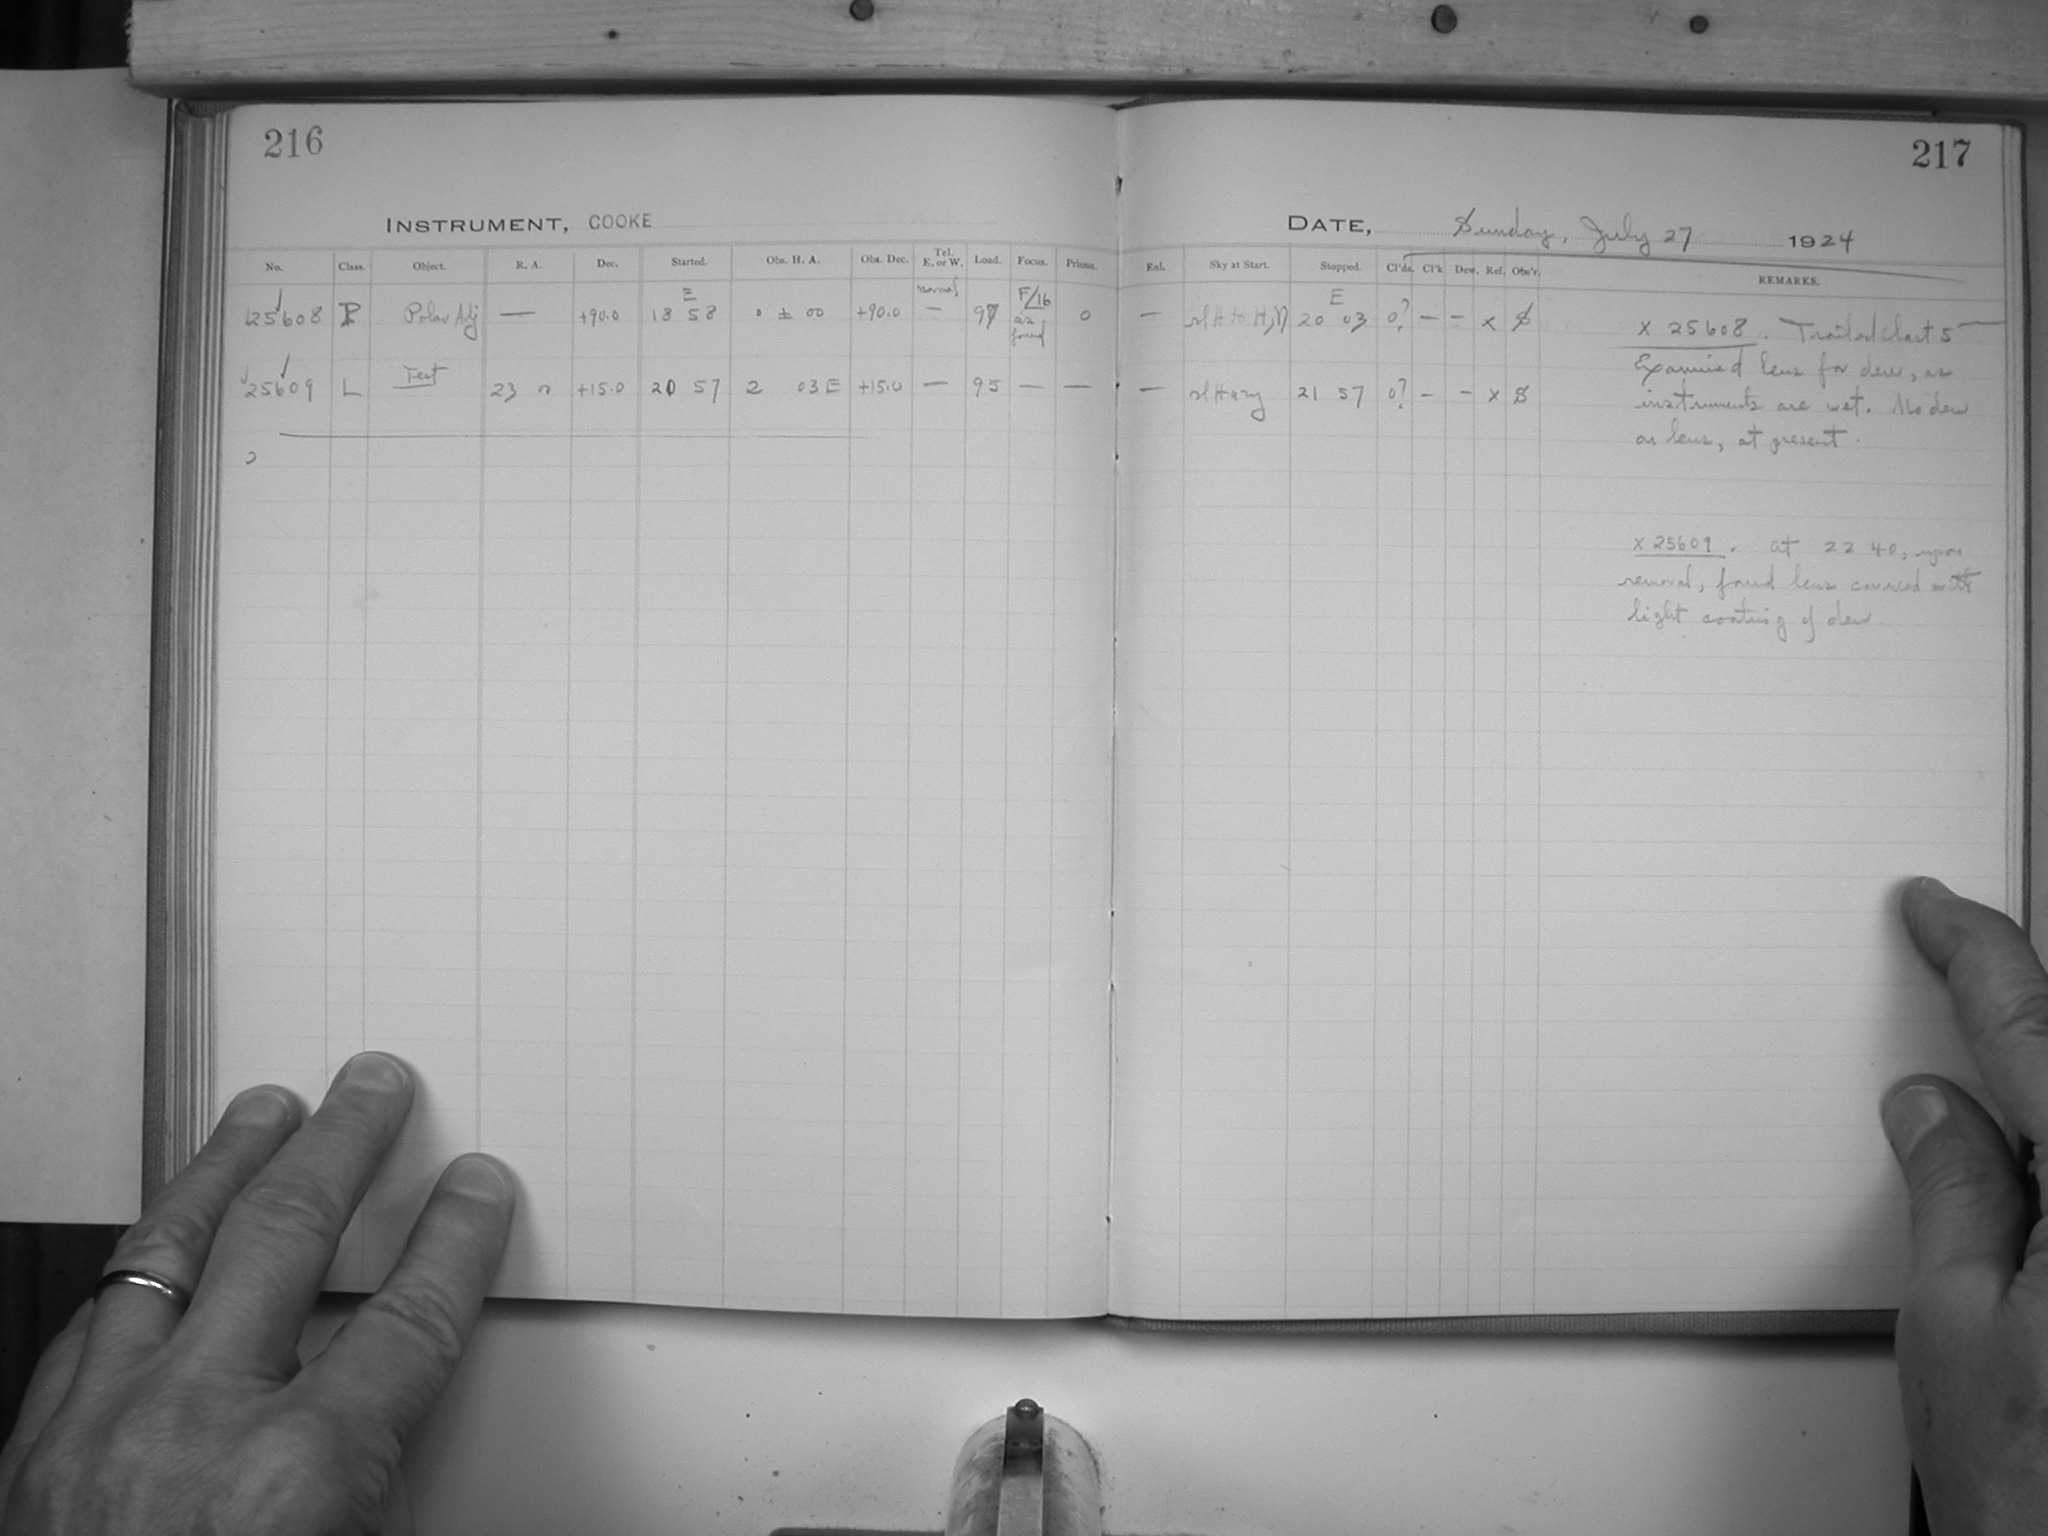 216
217
INSTRUMENT, COOKE
DATE, Sunday, July 27 1924
No. Class. Object. R. A. Dec. Started. Obs. H. A. Obs. Dec. Tel. E. or W. Load. Focus. Prisms. Enl. Sky at Start. Stopped. Cl'ds. Cl'k Dew. Ref. Obs'r. REMARKS.
E normal F/16 E
25608 P Polar Adj — +90.0 18 58 0 ± 00 +90.0 — 97 as found 0 — sl H to H, 20 03 0? — — x $
25609 L Test 23 n +15.0 20 57 2 03 E +15.0 — 95 — — — sl Hazy 21 57 0? - - x $
2
X 25608. Trailed last 5
Examined lens for dew, as
instruments are wet. No dew
on lens, at present.
X 25609. at 22 40, upon
removal, found lens covered with
light coating of dew